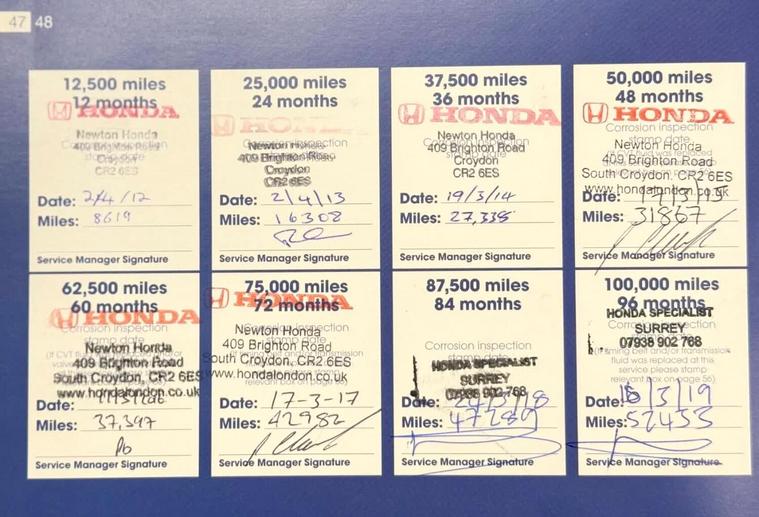 47 48
12,500 miles
12 months
HONDA
Newton Honda
409 Brighton Road
Croydon
CR2 6ES
Date: 2/4/12
Miles: 8619
Service Manager Signature
25,000 miles
24 months
HONDA
Newton Honda
409 Brighton Road
Croydon
CR2 6ES
Date: 2/4/13
Miles: 16302
Service Manager Signature
37,500 miles
36 months
HONDA
Newton Honda
409 Brighton Road
Croydon
CR2 6ES
Date: 19/3/14
Miles: 27,338
Service Manager Signature
50,000 miles
48 months
HONDA
Corrosion inspection
stamp date
Newton Honda
409 Brighton Road
South Croydon, CR2 6ES
www.hondalondon.co.uk
Date:
Miles: 31867
Service Manager Signature
62,500 miles
60 months
HONDA
Corrosion inspection
stamp date
Newton Honda
409 Brighton Road
South Croydon, CR2 6ES
www.hondalondon.co.uk
Date:
Miles: 37,397
Service Manager Signature
75,000 miles
72 months
HONDA
Newton Honda
409 Brighton Road
South Croydon, CR2 6ES
www.hondalondon.co.uk
relevant box on page 56)
Date: 17-3-17
Miles: 42982
Service Manager Signature
87,500 miles
84 months
Corrosion inspection
stamp date
HONDA SPECIALIST
SURREY
07938 902 768
Date:
Miles: 47289
Service Manager Signature
100,000 miles
96 months
HONDA SPECIALIST
SURREY
07938 902 768
(If timing belt and/or transmission
fluid was replaced at this
service please stamp
relevant box on page 56)
Date: /3/19
Miles: 52433
Service Manager Signature